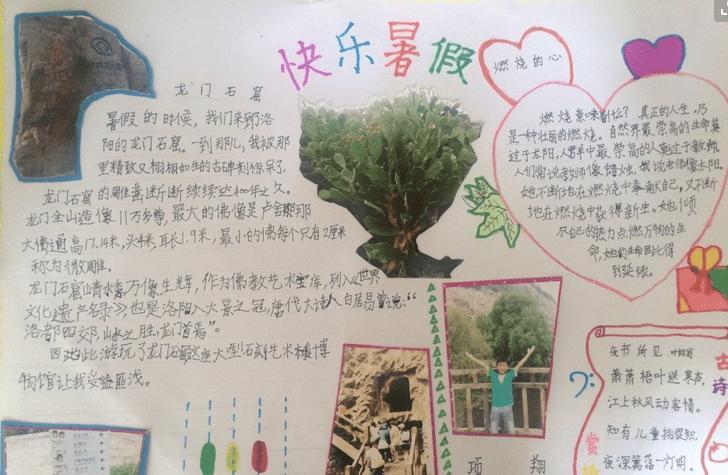 快乐暑假
龙门石窟
暑假的时候，我们来到洛
阳的龙门石窟。一到那儿，我被那
里精致又栩栩如生的古碑刻惊呆了。
龙门石窟的雕凿断断续续达400年之久。
龙门全山造像11万多尊，最大的佛像是卢舍那
大佛通高17.14米，头4米，耳长1.9米，最小的佛每个只有2厘米
称为微雕。
龙门石窟山清水秀万像生辉，作为佛教艺术宝库，列入《世界
文化遗产名录》也是洛阳八大景之冠，唐代大诗人白居易曾说：“
洛都四郊，山水之胜，龙门首焉”。
因此此游玩了龙门石窟这座大型石刻艺术博
物馆让我受益匪浅。
燃烧的心
燃烧意味着什么？真正的人生，乃
是一种壮丽的燃烧。自然界最崇高的生命莫
过于太阳，人群中最崇高的人莫过于教师
人们常说教师像蜡烛，我说老师像太阳。
她不断地在燃烧中奉献自己，又不断
地在燃烧中获得新生。她倾
尽自己的热力点燃万物的生
命，她的生命因此得
到延续。
项翔
古诗
赏
夜书所见 叶绍翁
萧萧梧叶送寒声
江上秋风动客情。
知有儿童挑促织
夜深篱落一灯明。